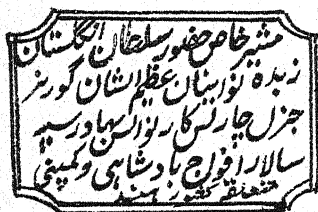 مشیر خاص حضور سلطان انگلستان
زبدہ نوابینان عظیم الشان گورنر
جنرل چارلس کارنوالس بہادر سپہ
سالار افواج بادشاہی و کمپنی
کشور ہند